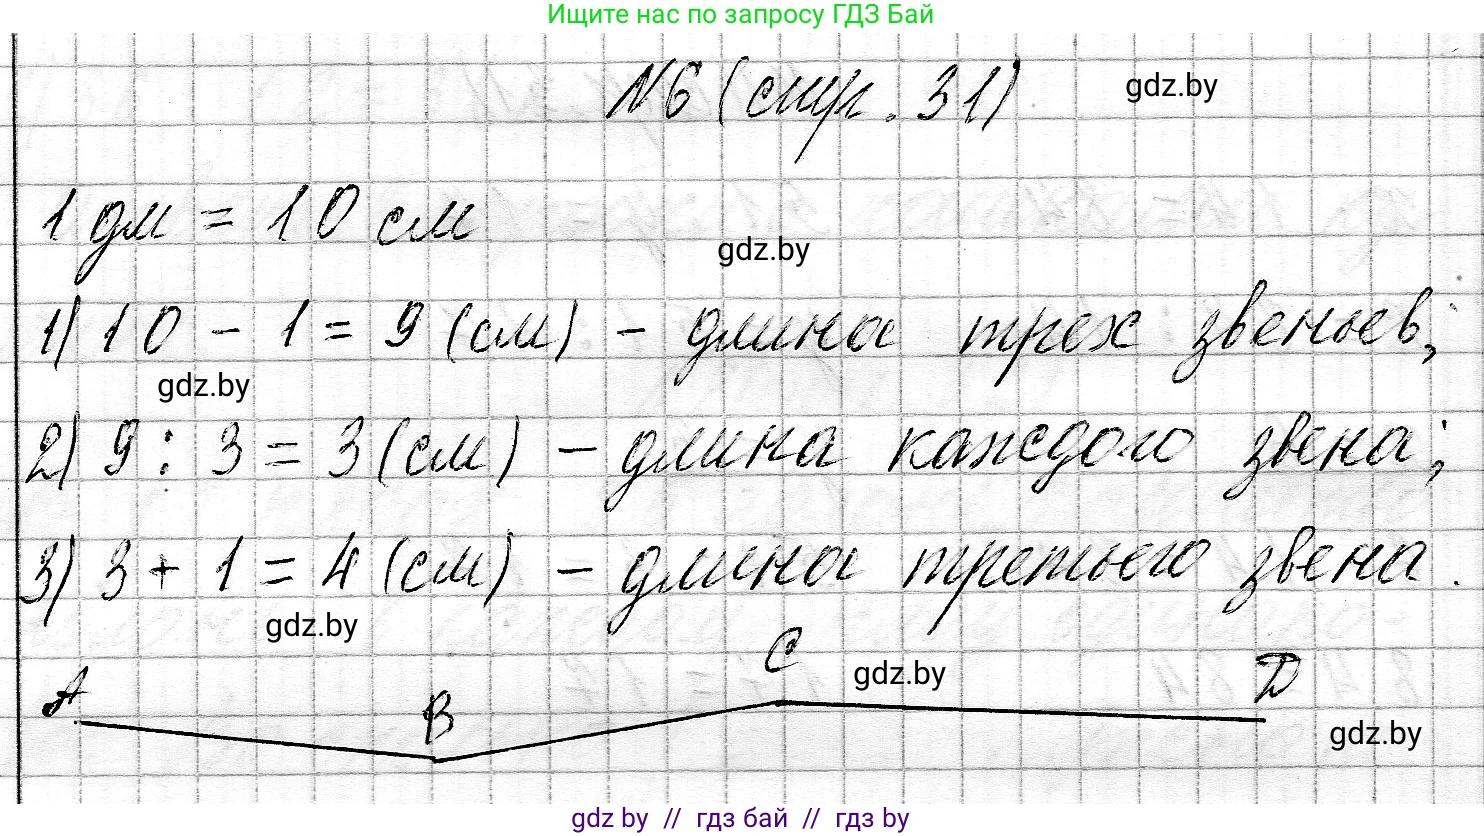 Ищите нас по запросу ГДЗ Бай
№6 (стр. 31)
gdz.by
1 дм = 10 см
gdz.by
1) 10 - 1 = 9 (см) - длина трех звеньев;
gdz.by
2) 9 : 3 = 3 (см) - длина каждого звена;
3) 3 + 1 = 4 (см) - длина третьего звена.
gdz.by
A B C D
gdz.by
gdz.by
gdz by // гдз бай // гдз by